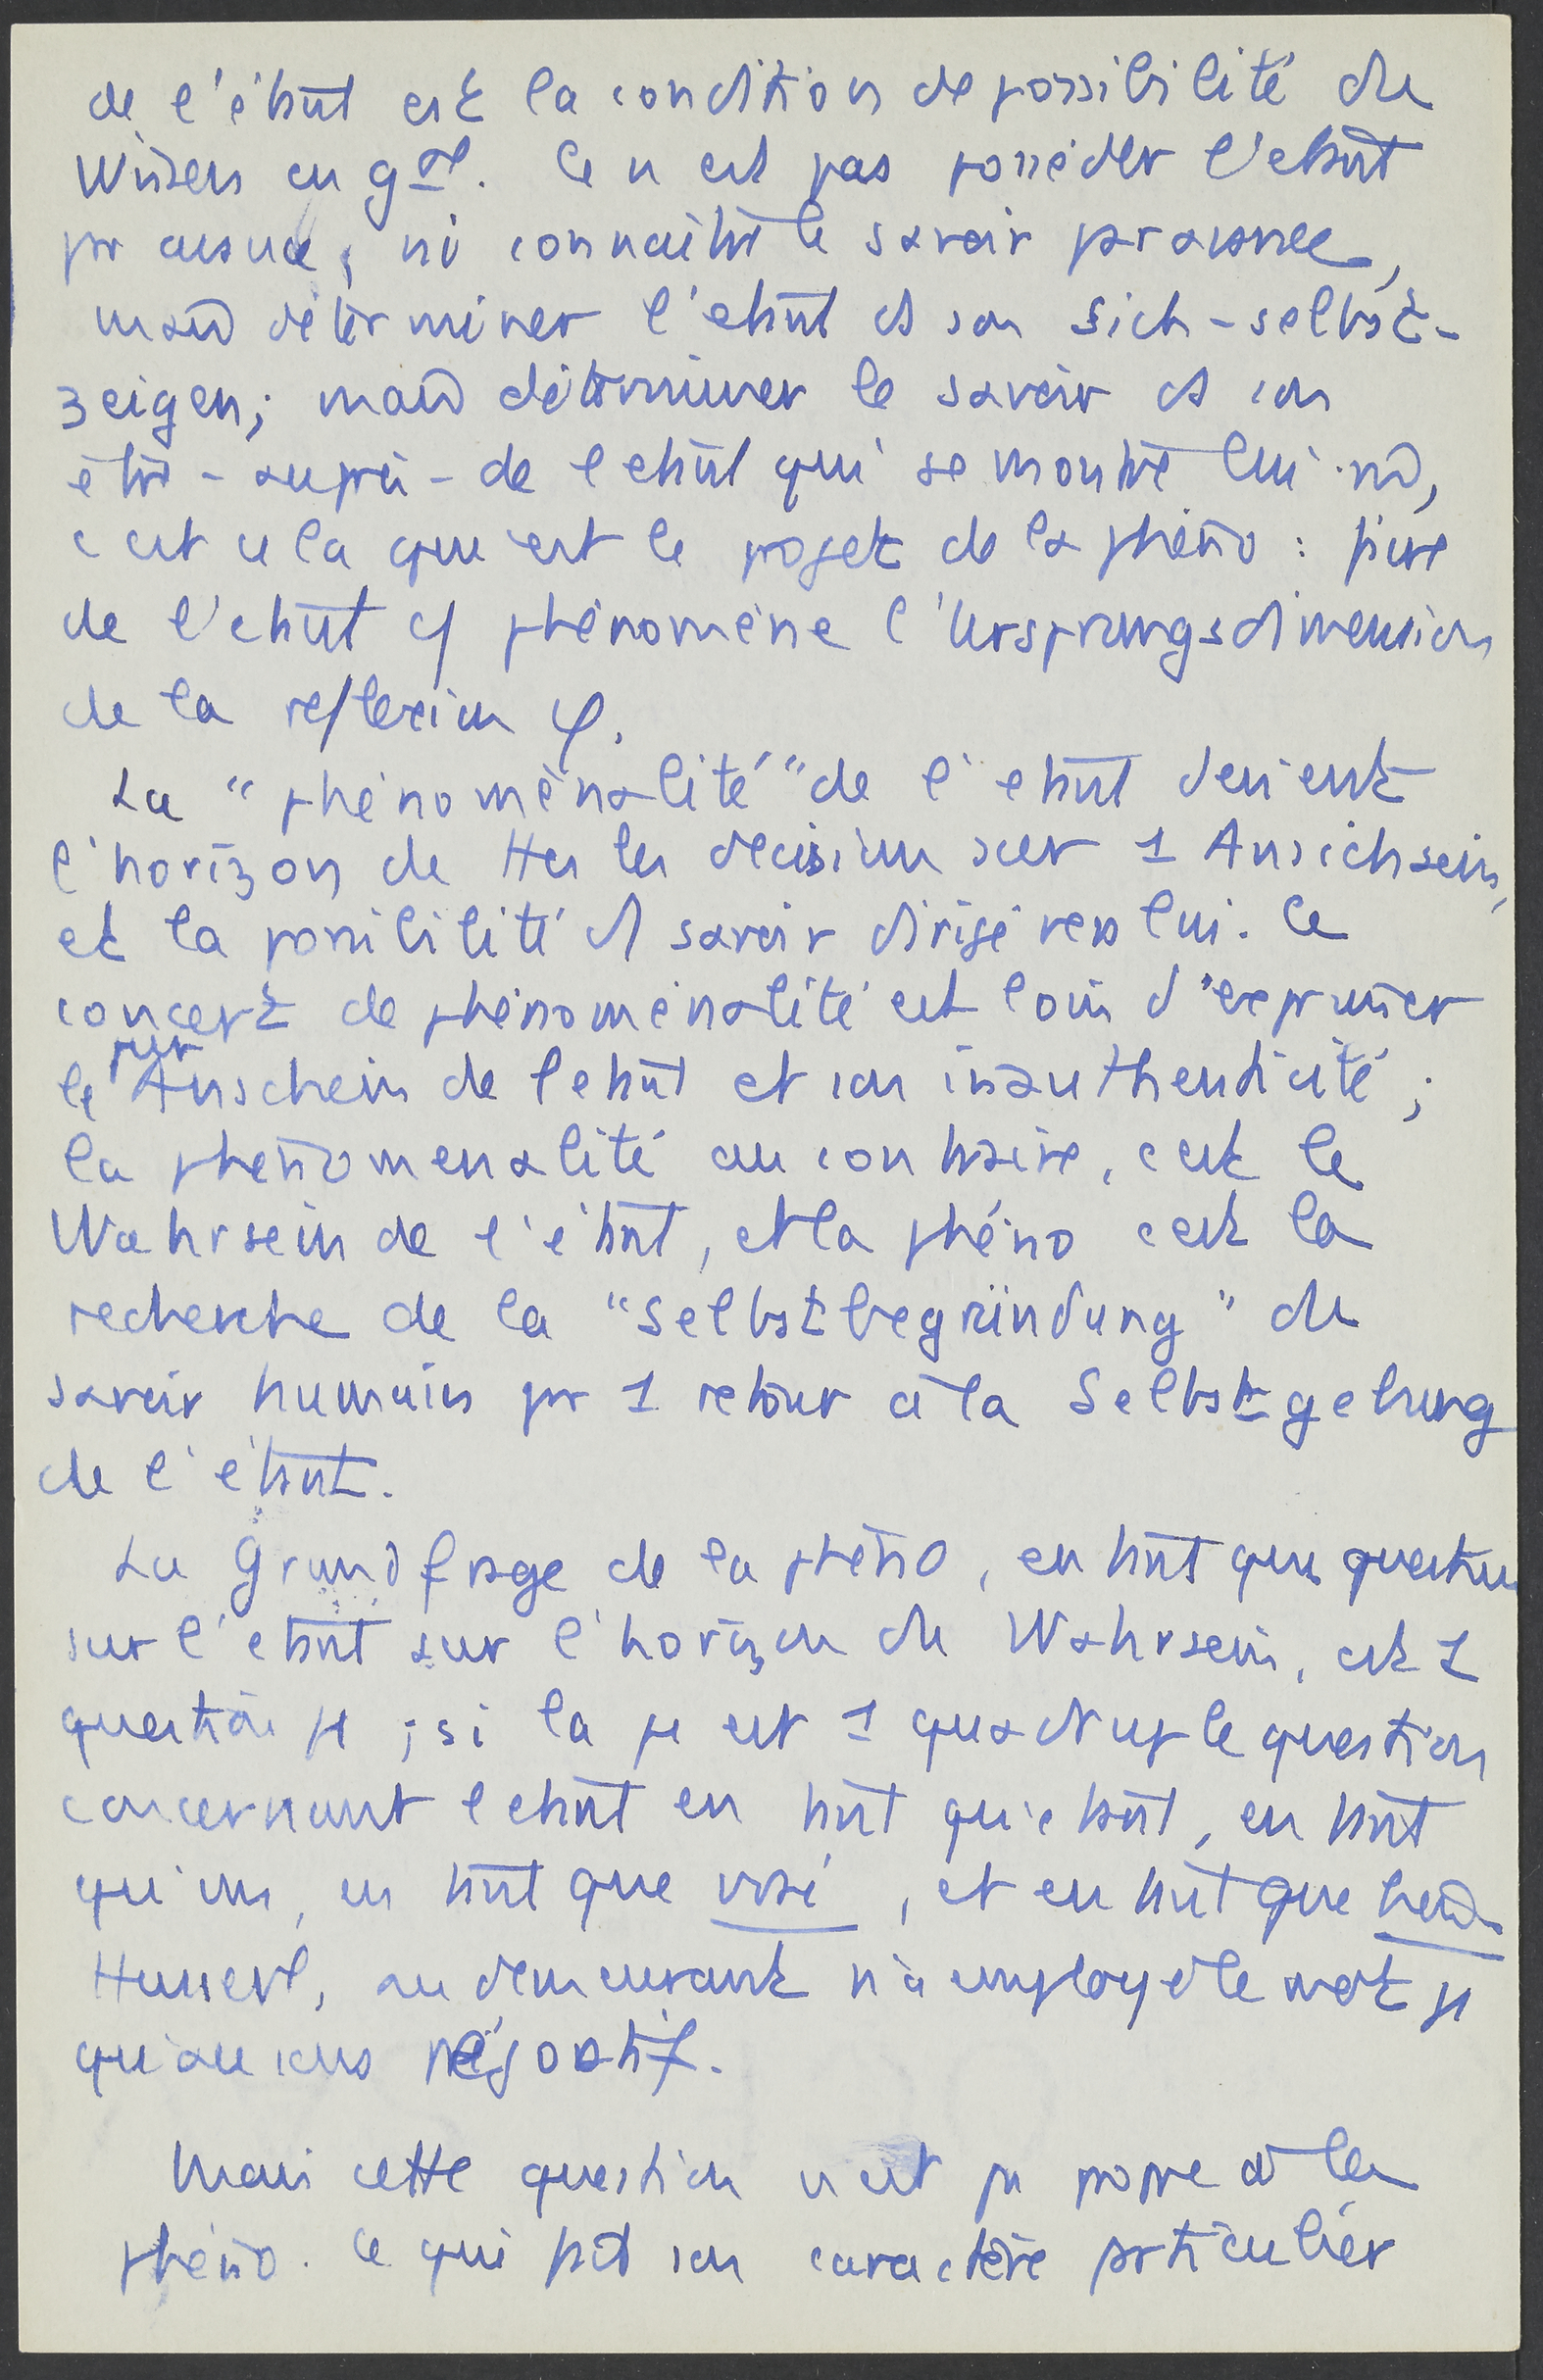 de l'étant est la condition de possibilité du
Wissen en gal. Ce n'est pas posséder l'étant
par avance, ni connaître le savoir par avance,
mais déterminer l'étant ds son Sich-selbst-
zeigen; mais déterminer le savoir ds son
être-auprès-de l'étant qui se montre lui-m,
c'est cela qu'est le projet de la phéno : faire
de l'étant cf phénomène l'Ursprungsdimension
de la réflexion φ.
La "phénoménalité" de l'étant devient
l'horizon de ttes les décisions sur 1 Ansichsein,
et la possibilité d savoir dirigé vers lui. Le
concept de phénoménalité est loin d'exprimer
le pur Anschein de l'étant et son inauthenticité ;
la phénoménalité au contraire, c'est le
Wahrsein de l'étant, et la phéno c'est la
recherche de la "Selbstbegründung" du
savoir humain par 1 retour à la Selbstgebung
de l'étant.
La Grundfrage de la phéno, en tant que question
sur l'étant sur l'horizon du Wahrsein, est 1
question μ ; si la μ est 1 quadruple question
concernant l'étant en tant qu'étant, en tant
qu'un, en tant que vrai, et en tant que
Husserl, au demeurant n'a employé le mot μ
qu'au sens péjoratif.
Mais cette question n'est pas propre à la
phéno. Ce qui fait son caractère particulier